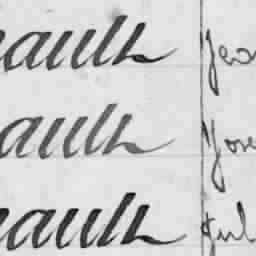 nault Jea
ault Jose
nault Jul